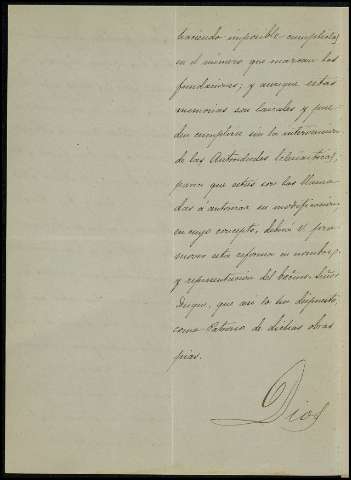 haciendo imposible cumplirlas
en el número que marcan las
fundaciones; y aunque estas
memorias son laicales y pue-
den cumplirse sin la intervención
de las Autoridades Eclesiásticas,
que estas son las llama
das á autorizar su modificación,
en cuyo concepto, debería el pro
esta reforma en nombre,
y representación del Excmo. Señor
Duque, que así lo ha dispuesto,
como Patrono de dichas obras
pias.
Dios